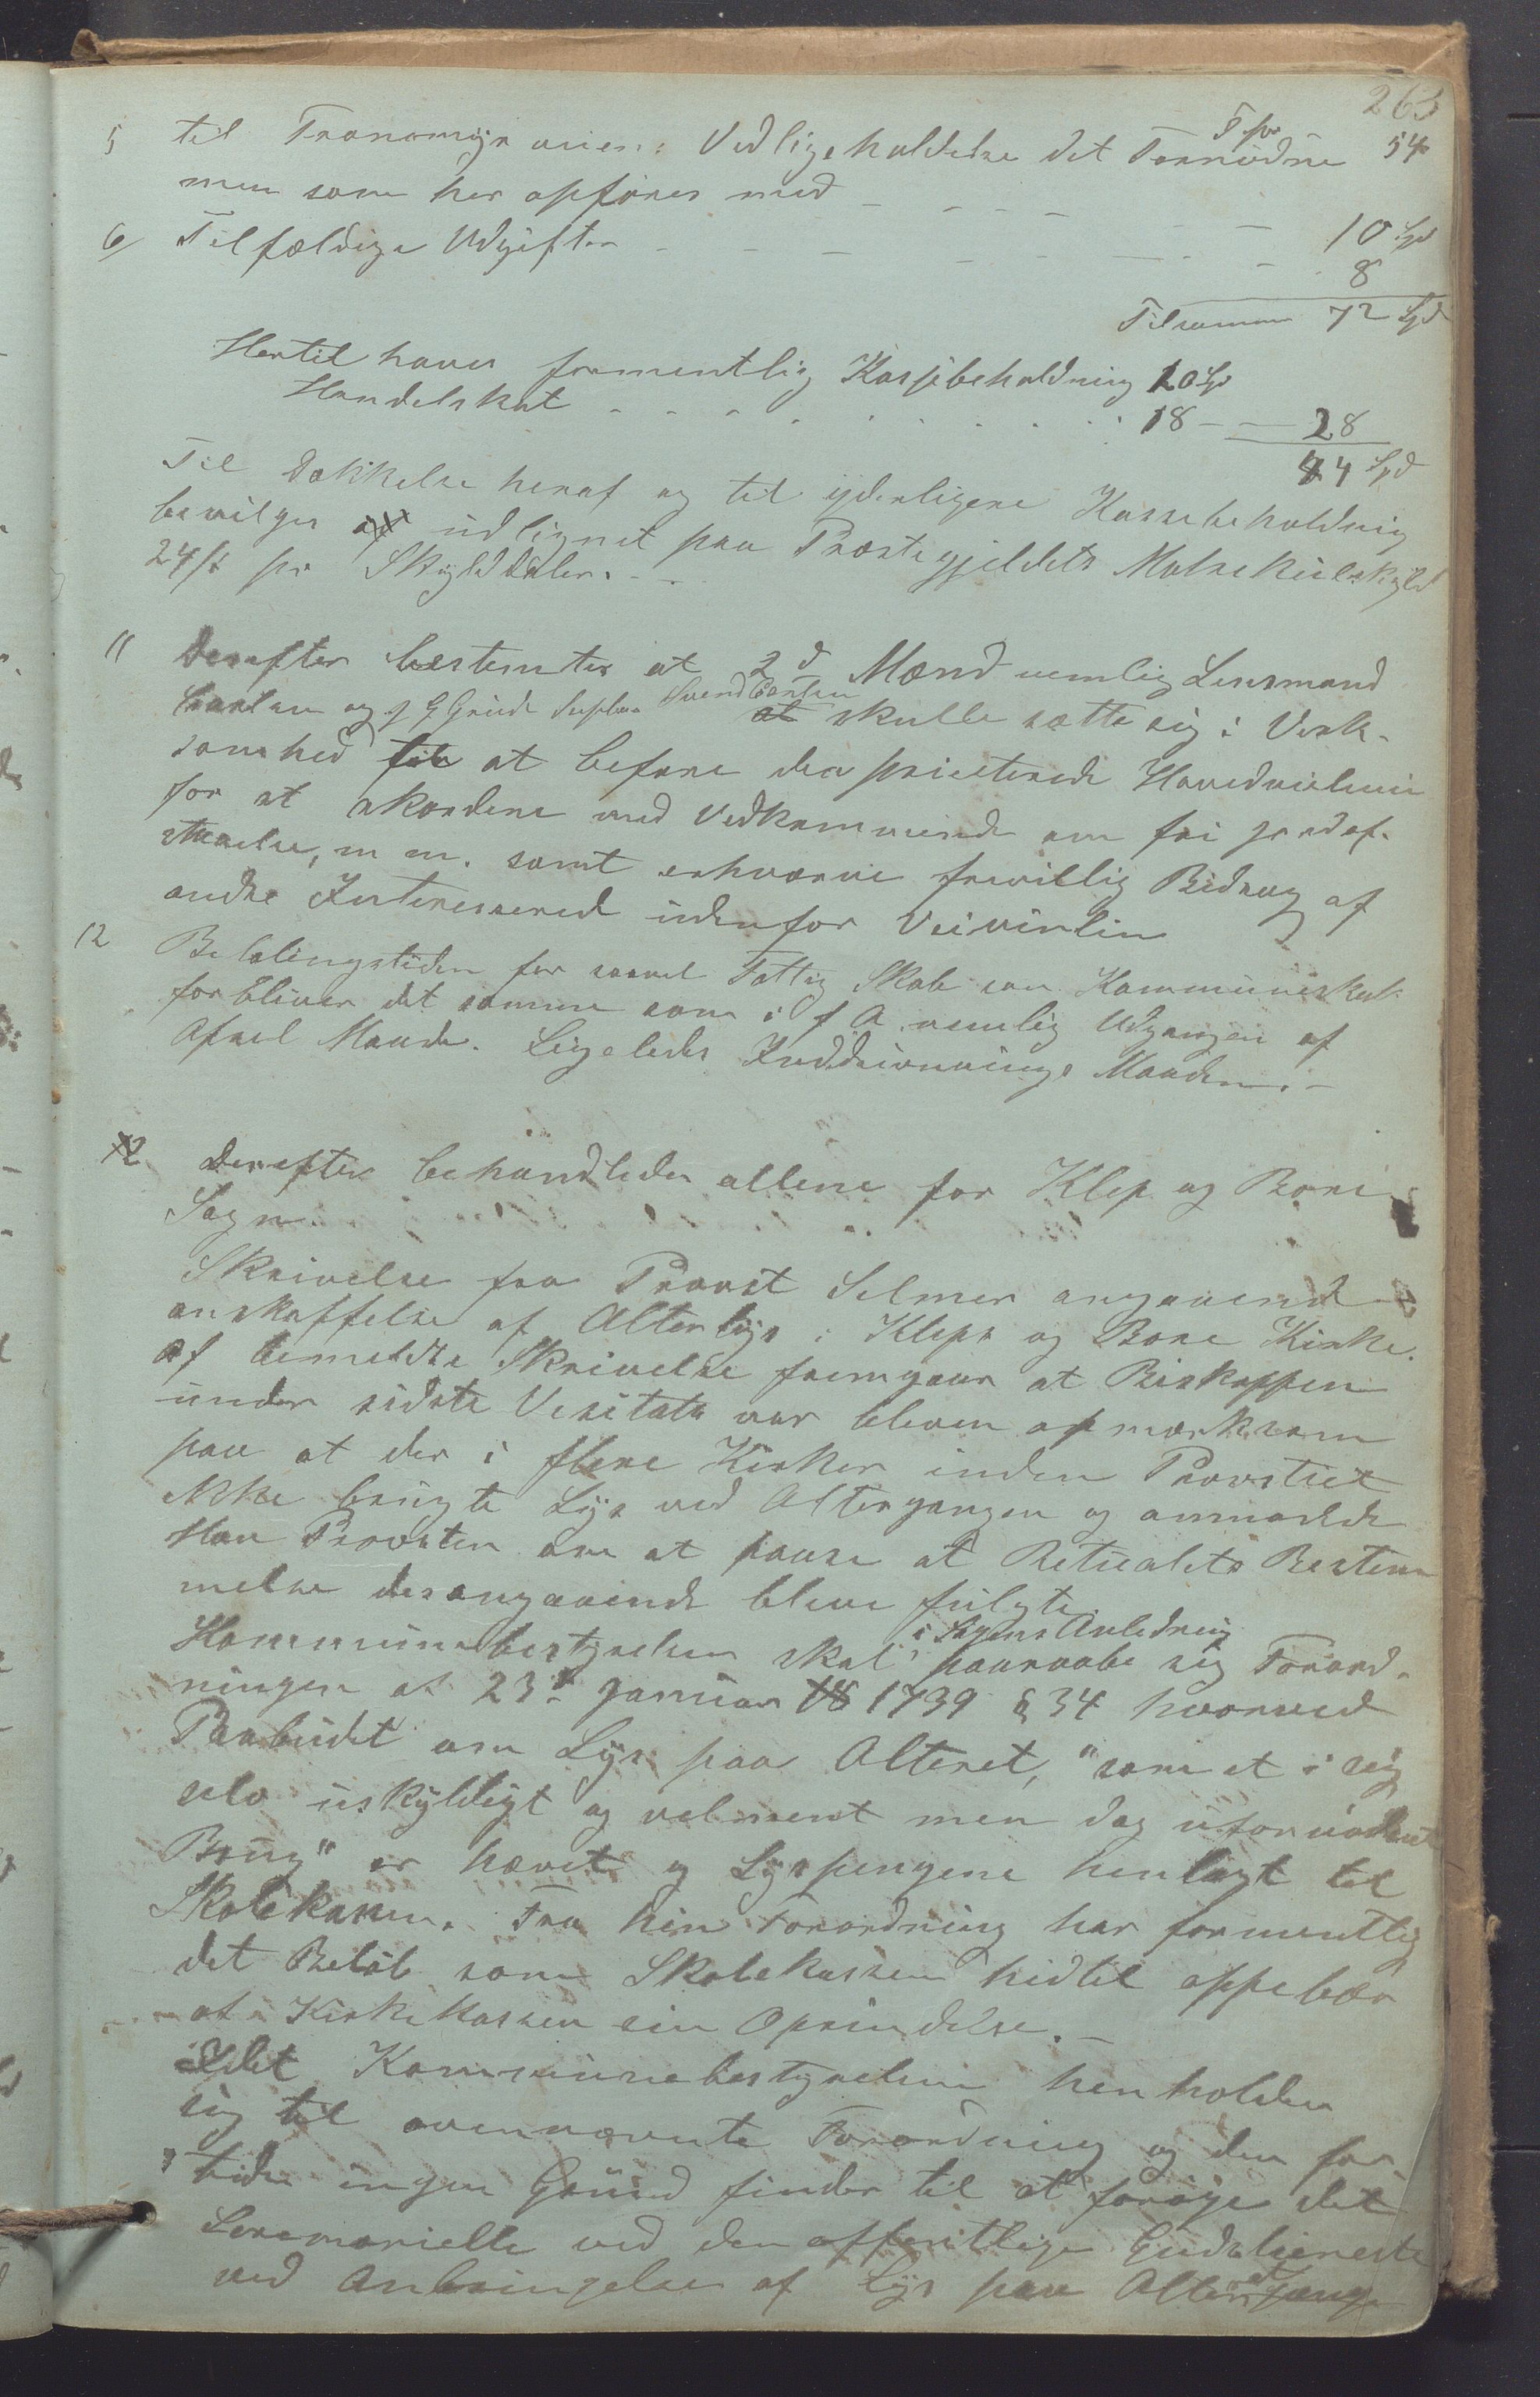 263
5 til Tranemyr veien: Vedligeholdelse det Fornødne Tpr 54
men som her opføres med - - - - 10 Spd
6/ Tilfældige Udgifter - - - - 8
Tilsammen 72 Spd
Hertil haves formentlig Kassebeholdning 10 Spd
Handelskat - - - 18 - - 28
44 Spd
Til Dækkelse heraf og til yderligere Kassebeholdning
bevilges udlignet paa Præstegjeldets Matrikulskyld
24 ß pr Skylddaler. -
11 Derefter bestemtes at 2d Mænd nemlig Lensmand
og J G Grude Svend skulle sætte sig i Virk-
somhed til at befare den Hovedveilinie
for at akordere med Vedkommende om fri Jordaf-
staaelse, m m. samt erhværve frivillig Bidrag af
andre Interesserede udenfor Veivirlin
12 Betalingstiden for saavel Fattig Skole som Kommuneskat
forbliver det samme som i f A. nemlig Udgangen af
April Maaned. Ligeledes Inddrivnings Maaden. -
12 Derefter behandledes allene for Klep og Bore
Sogn.
Skrivelse fra Provst Selmer angaaende
anskaffelse af Alterlys i Kleps og Bore Kirke.
Af bemeldte Skrivelse fremgaar at Biskoppen
under sidste Visitats var bleven opmærksom
paa at der i flere Kirker inden Provstiet
ikke brugte Lys ved Altergangen og anmodede
Han Provsten om at paase at Ritualets Bestem
melse desangaaende bleve fulgte.
Kommunebestyrelsen skal i Sagens Anledning paaraabe sig Forord-
ningen af 23d Januar 1739 § 34 hvorved
Paabudet om Lys paa Alteret, "som et i sig
selv uskyldigt og velment men dog ufornødent
Brug" er hævet og Lyspengene henlagt til
Skolekassen. Fra hin Forordning har formentlig
det Beløb som Skolekassen hidtil oppebær
af Kirkekassen sin Oprindelse. -
Idet Kommunebestyrelsen henholder
sig til ovennævnte Forordning og den for-
tiden ingen Grund finder til at forøge det
Seremonielle ved den offentlige Gudstieneste
ved Anbringelse af Lys paa Alteret